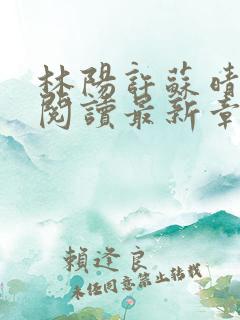 林陽許蘇晴
閱讀最新章
賴逢良
未經同意禁止轉載